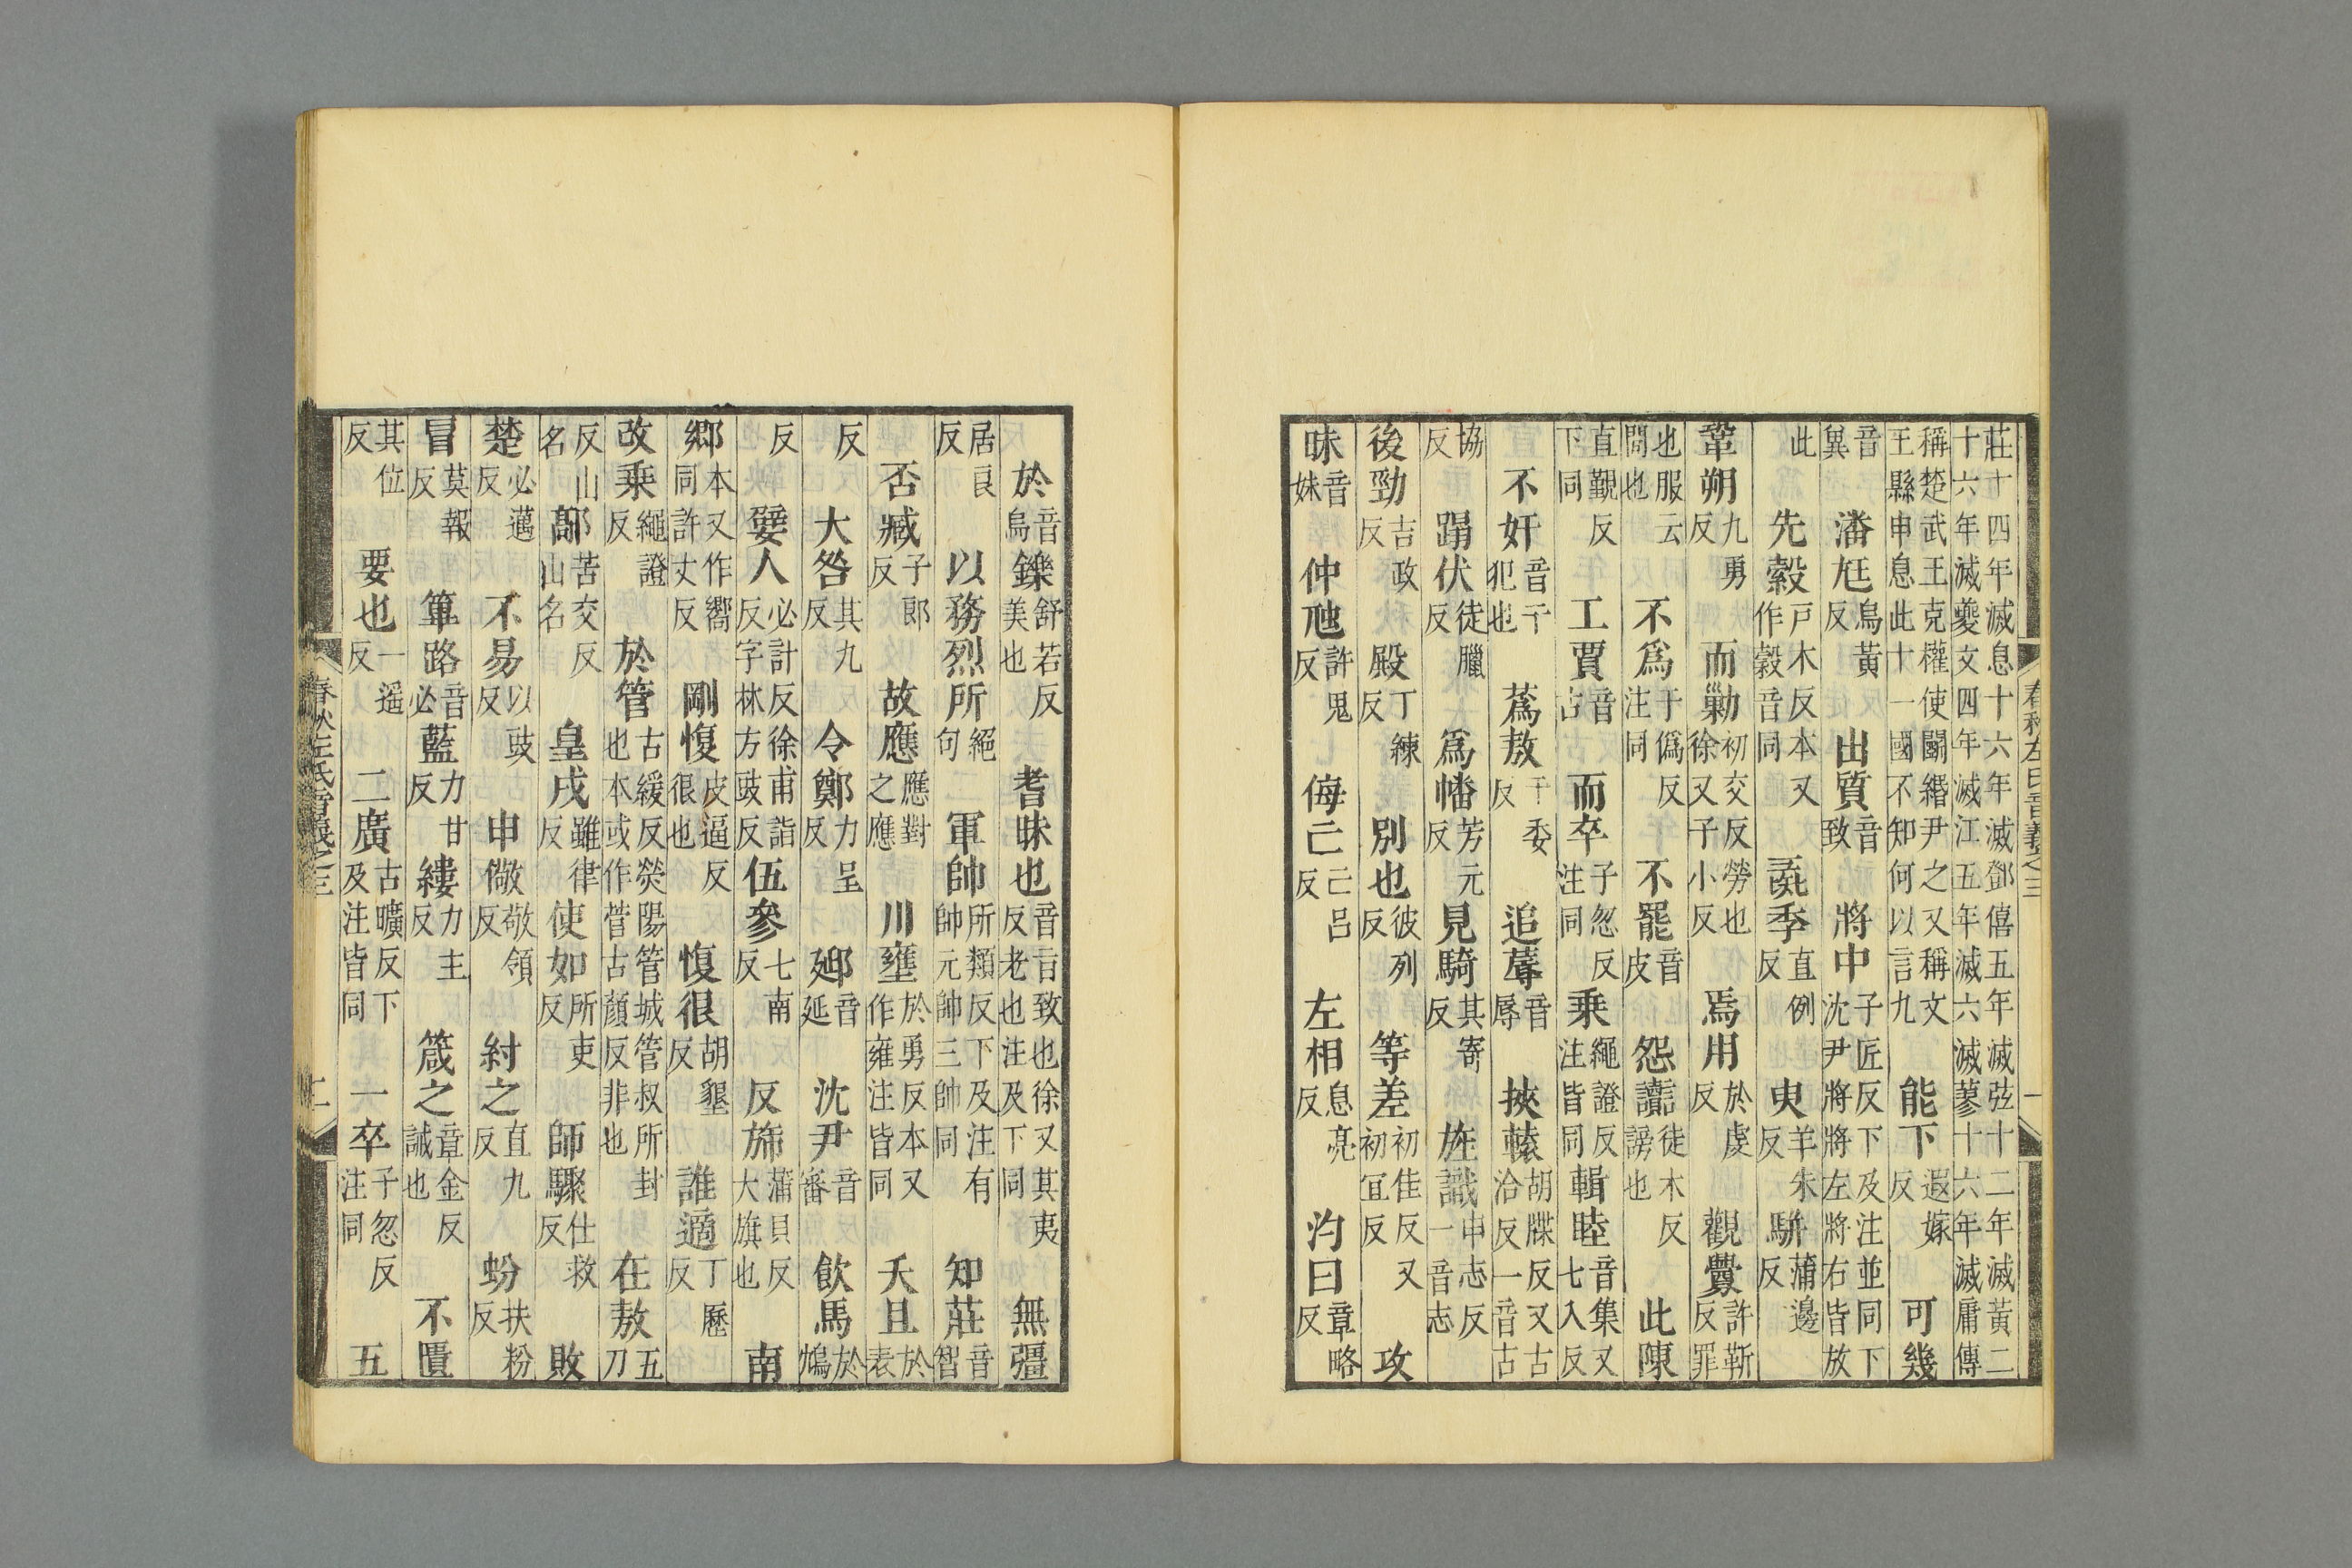 春秋左氏音義之三
莊十四年滅息十六年滅鄧僖五年滅弦十二年滅黃二十六年滅夔文四年滅江五年滅六滅蓼十六年滅庸傳
稱楚武王克權使鬬緡尹之又稱文王縣申息此十一國不知何以言九 能下遐嫁反 可幾
音異 潘尫烏黃反 出質音致 將中子匠反下及注並同下沈尹將將左將右皆放
此 先縠戶木反本又作穀音同 彘季直例反 臾羊朱反 騈蒲邊反
鞏朔九勇反 而勦初交反勞也徐又子小反 焉用於虔反 觀釁許靳反罪
也服云間也 不爲于僞反注同 不罷音皮 怨讟徒木反謗也 此陳
直覲反下同 工賈音古 而卒子忽反注同 乗繩證反注皆同 輯睦音集又七入反
不奸音干犯也 蒍敖于委反 追蓐音辱 挾轅胡牒反又古洽反一音古
協反 蹋伏徒臘反 爲幡芳元反 見騎其寄反 旌識申志反一音志
後勁吉政反 殿丁練反 別也彼列反 等差初佳反又初宜反 攻
昧音妹 仲虺許鬼反 侮亡亡呂反 左相息亮反 汋曰章略反
於音烏 鑠舒若反美也 耆昧也音旨致也徐又其夷反老也注及下同 無彊
居良反 以務烈所絕句 軍帥所類反下及注有帥元帥三帥同 知莊音智
否臧子郎反 故應應對之應 川壅於勇反本又作雍注皆同 夭且於表
反 大咎其九反 令鄭力呈反 郔音延 沈尹音審 飲馬於鴆
反 嬖人必計反徐甫詣反字林方豉反 伍參七南反 反旆蒲貝反大旗也 南
鄉本又作嚮同許丈反 剛愎皮逼反很也 愎很胡墾反 誰適丁歷反
改乗繩證反 於管古緩反熒陽管城管叔所封也本或作菅古顔反非也 在敖五刀
反山名 鄗苦交反山名 皇戌雖律反 使如所吏反 師驟仕救反 敗
楚必邁反 不易以豉反 申儆敬領反 紂之直九反 蚡扶粉反
冒莫報反 篳路音必 藍力甘反 縷力主反 箴之章金反誡也 不匱
其位反 要也一遥反 二廣古曠反下及注皆同 一卒子忽反注同 五
春秋左氏音義之三